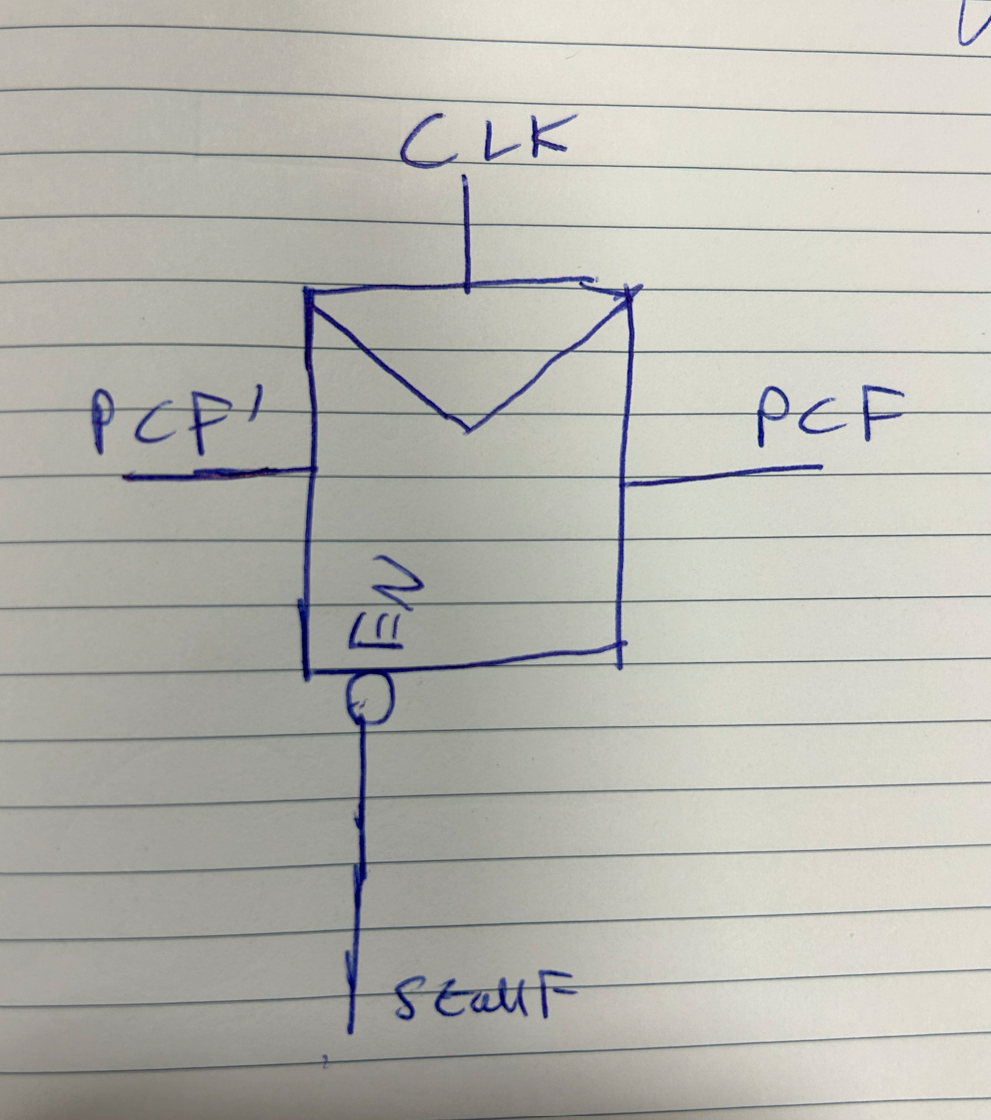 CLK
PCF'
PCF
EN
StallF